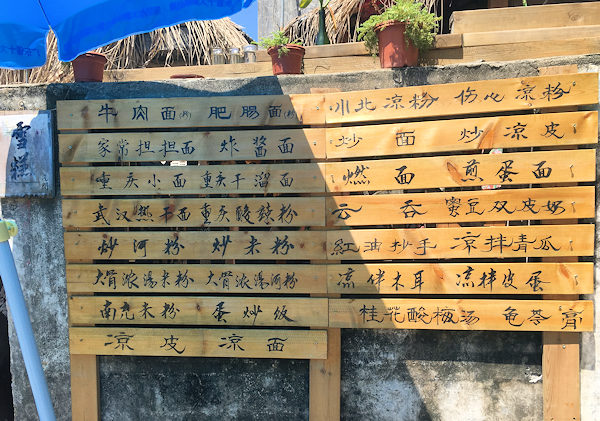 雪糕
牛肉面 肥肠面
家常担担面 炸酱面
重庆小面 重庆干溜面
武汉热干面 重庆酸辣粉
炒河粉 炒米粉
大骨浓汤米粉 大骨浓汤河粉
南充米粉 蛋炒饭
凉皮 凉面
川北凉粉 伤心凉粉
炒面 炒凉皮
燃面 煎蛋面
云吞 蜜豆双皮奶
红油抄手 凉拌青瓜
凉伴木耳 凉拌皮蛋
桂花酸梅汤 龟苓膏